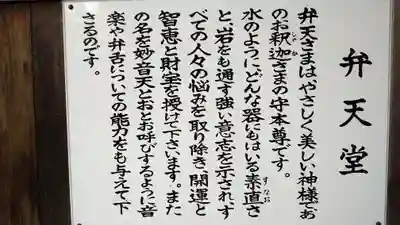 弁天堂
弁天さまは、やさしく美しい神様でお
のお釈迦さまの守本尊です。
水のように、どんな器にもはいる素直さ
と、岩をも通す強い意志を示され、す
べての人々の悩みを取り除き、開運と
智恵と財宝を授けて下さいます。また
の名を妙音天とおとお呼びするように音
楽や弁舌についての能力をも与えて下
さるのです。